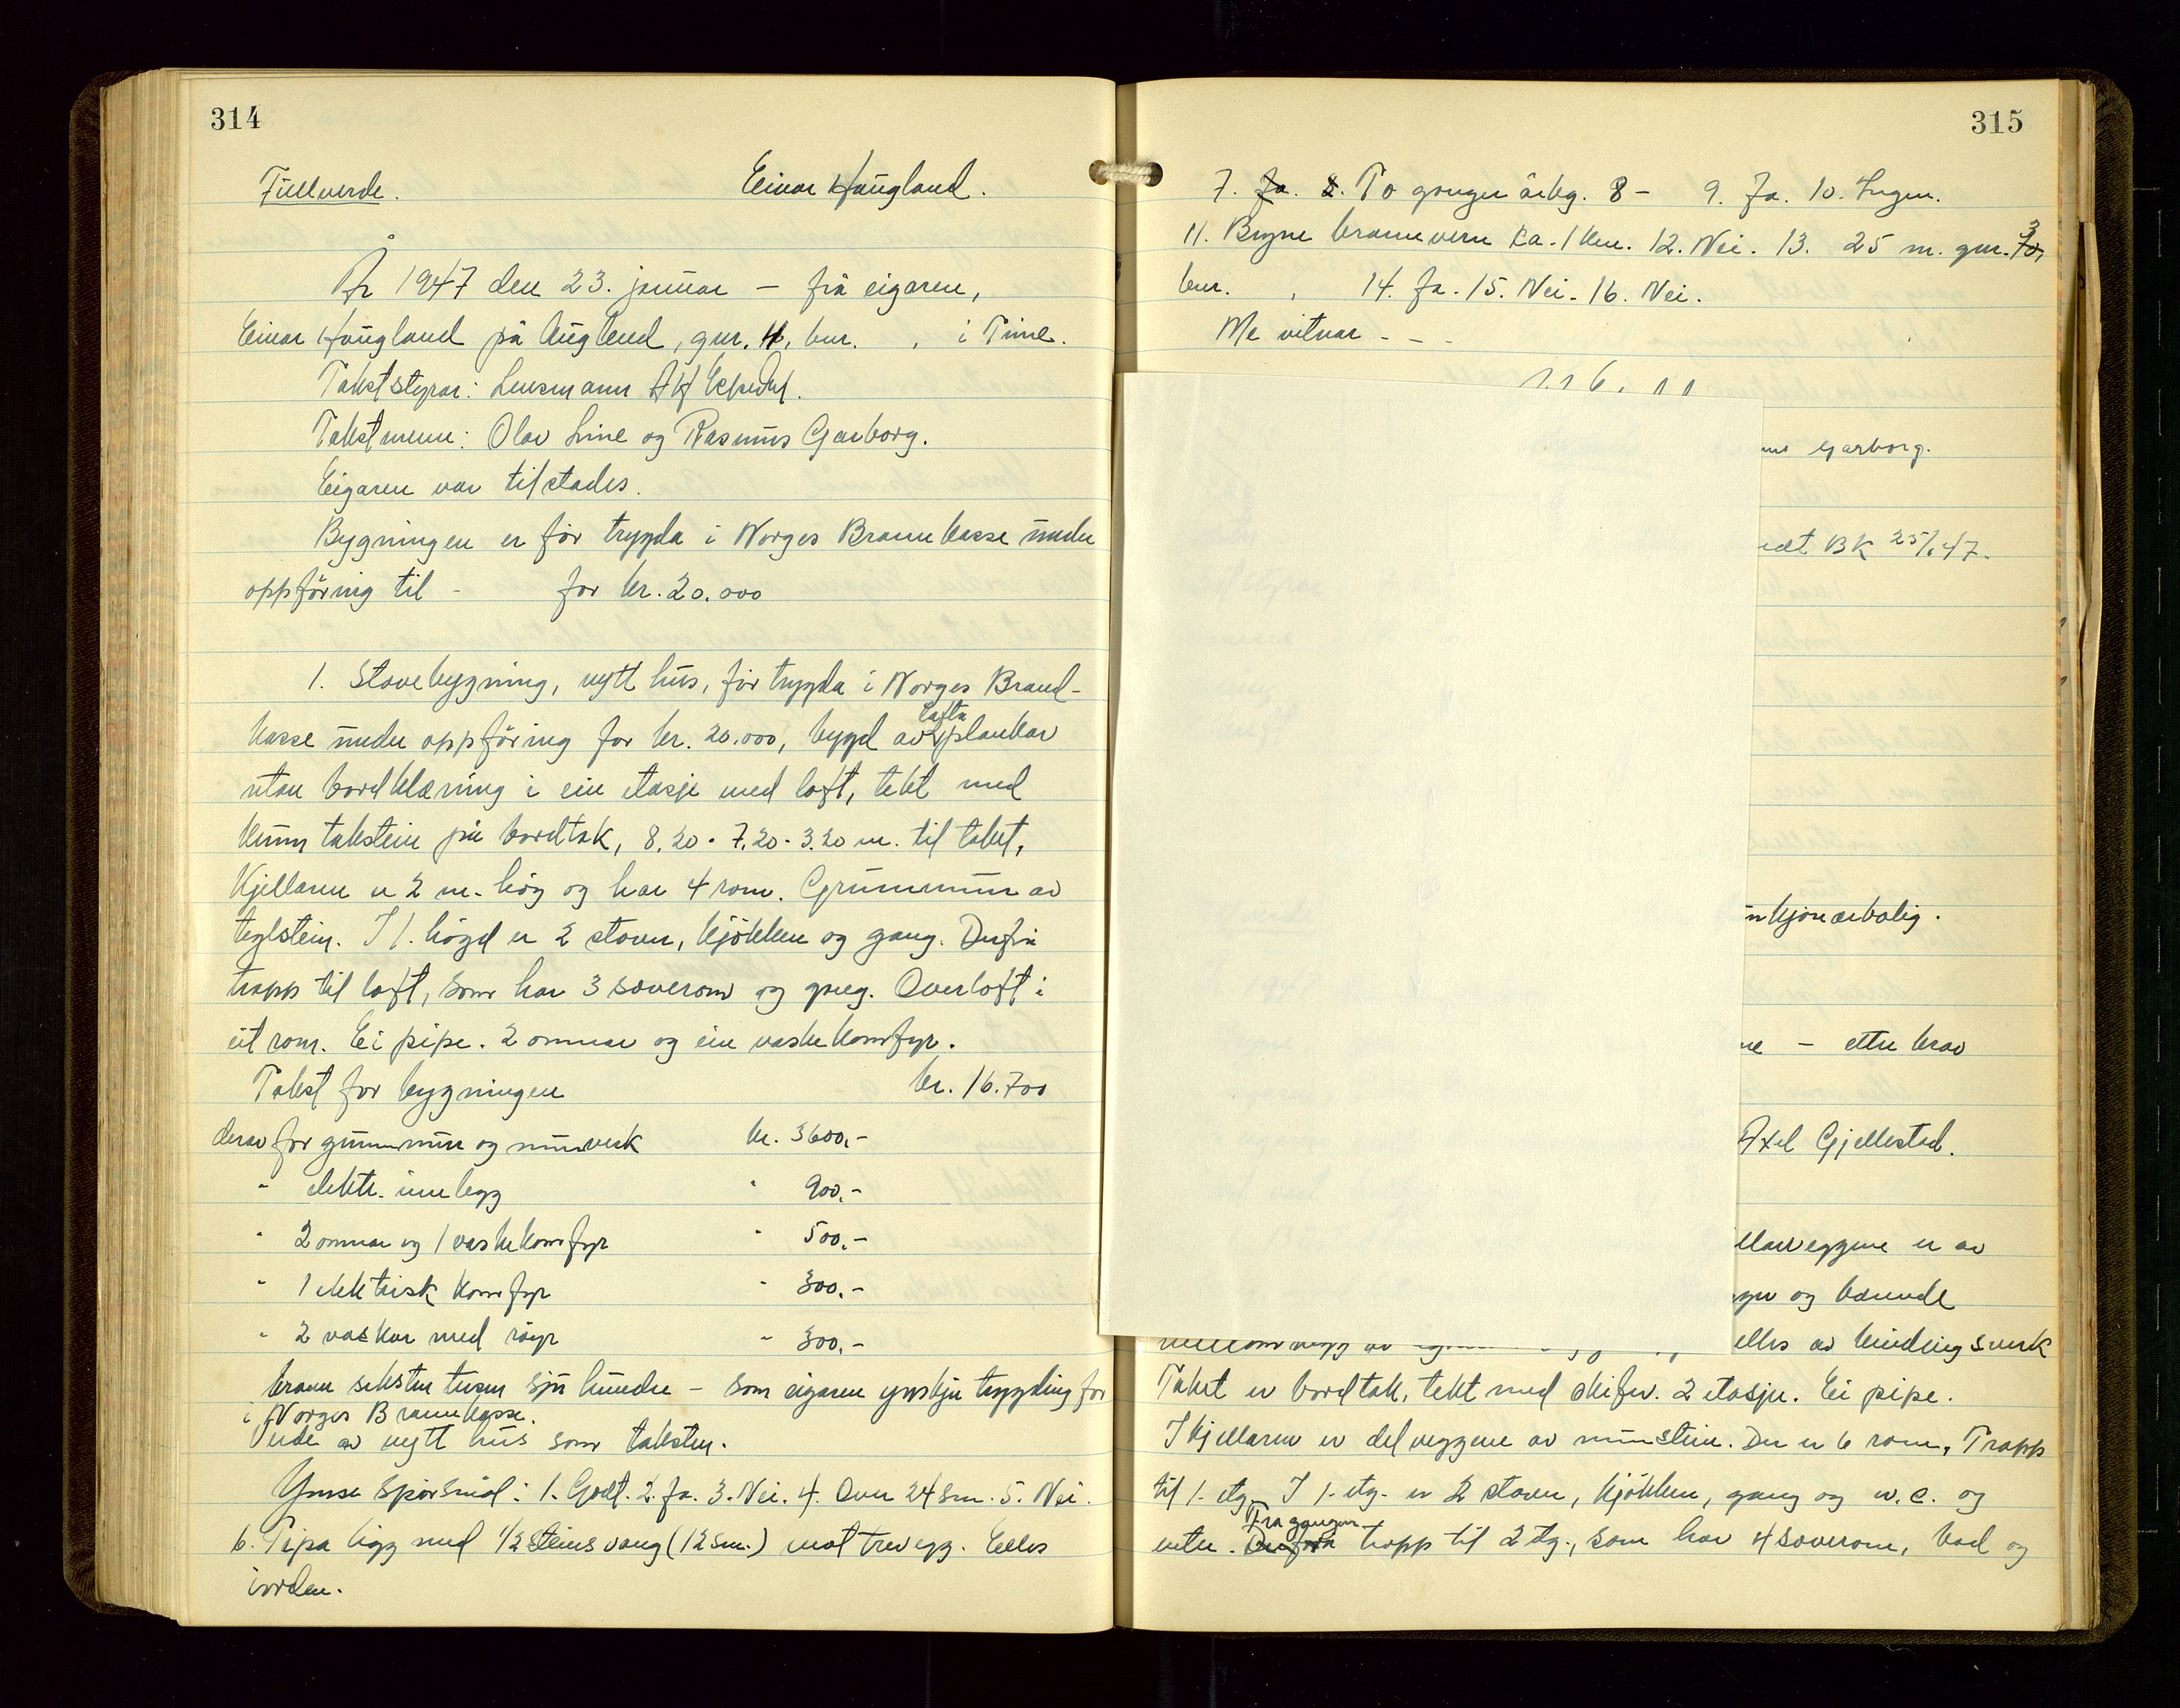 314
Fullverde. Einar Haugland.
År 1947 den 23. januar – frå eigaren,
Einar Haugland på Augland, gnr. 4, bnr. , i Time.
Takststyrar: Lensmann
Takstmenn: Olav Line og Rasmus Garborg.
Eigaren var tilstades.
Bygningen er før trygda i Norges Brannkasse under
oppføring til – for kr. 20.000
1. Stovebygning, nytt hus, før trygda i Norges Brand-
kasse under oppføring for kr. 20.000, bygd av lafta plankar
utan bordklæning i ein etasje med loft, tekt med
krum takstein på bordtak, 8.20 · 7.20 · 3.20 m. til taket,
Kjellaren er 2 m. høg og har 4 rom. Grunnmur av
teglstein. I 1. høgd er 2 stover, kjøkken og gang. Derfrå
trapp til loft, som har 3 soverom og gang. Overloft i
eit rom. Ei pipe. 2 omnar og ein vaskekomfyr.
Takst for bygningen kr. 16.700
derav for grunnmur og murverk kr. 3600,-
" elektr. innlegg " 900.-
" 2 omnar og 1 vaskekomfyr " 500.-
" 1 elektrisk komfyr " 300.-
" 2 vaskar med røyr " 300.-
kroner seksten tusen sju hundre – som eigaren ynskjer trygding for
i Norges Brannkasse.
Verde av nytt hus som taksten.
Ymse spørsmål: 1. Godt. 2. Ja. 3. Nei. 4. Over 24 sm. 5. Nei.
6. Pipa ligg med 1/2 steins vang (12 sm.) mot trevegg. Elles
iorden.
315
7. Ja. 8. To gonger årleg. 8 – 9. Ja. 10. Ingen.
11. Bryne brannvern ca. 1 km. 12. Nei. 13. 25 m. gnr. 3 70,
bnr. , 14. Ja. 15. Nei. 16. Nei.
Me vitnar - - -
Garborg.
BK 25/1 47.
– etter krav
Axel Gjellestad.
er av
og bærende
elles av bindingsverk
Taket er bordtak, tekt med skifer. 2 etasjer. Ei pipe.
I kjellaren er delveggene av murstein. Der er 6 rom, Trapp
til 1. etg. I 1. etg. er 2 stover, kjøkken, gang og w.c. og
entre. Derfra Fra gangen trapp til 2 etg., som har 4 soverom, bad og